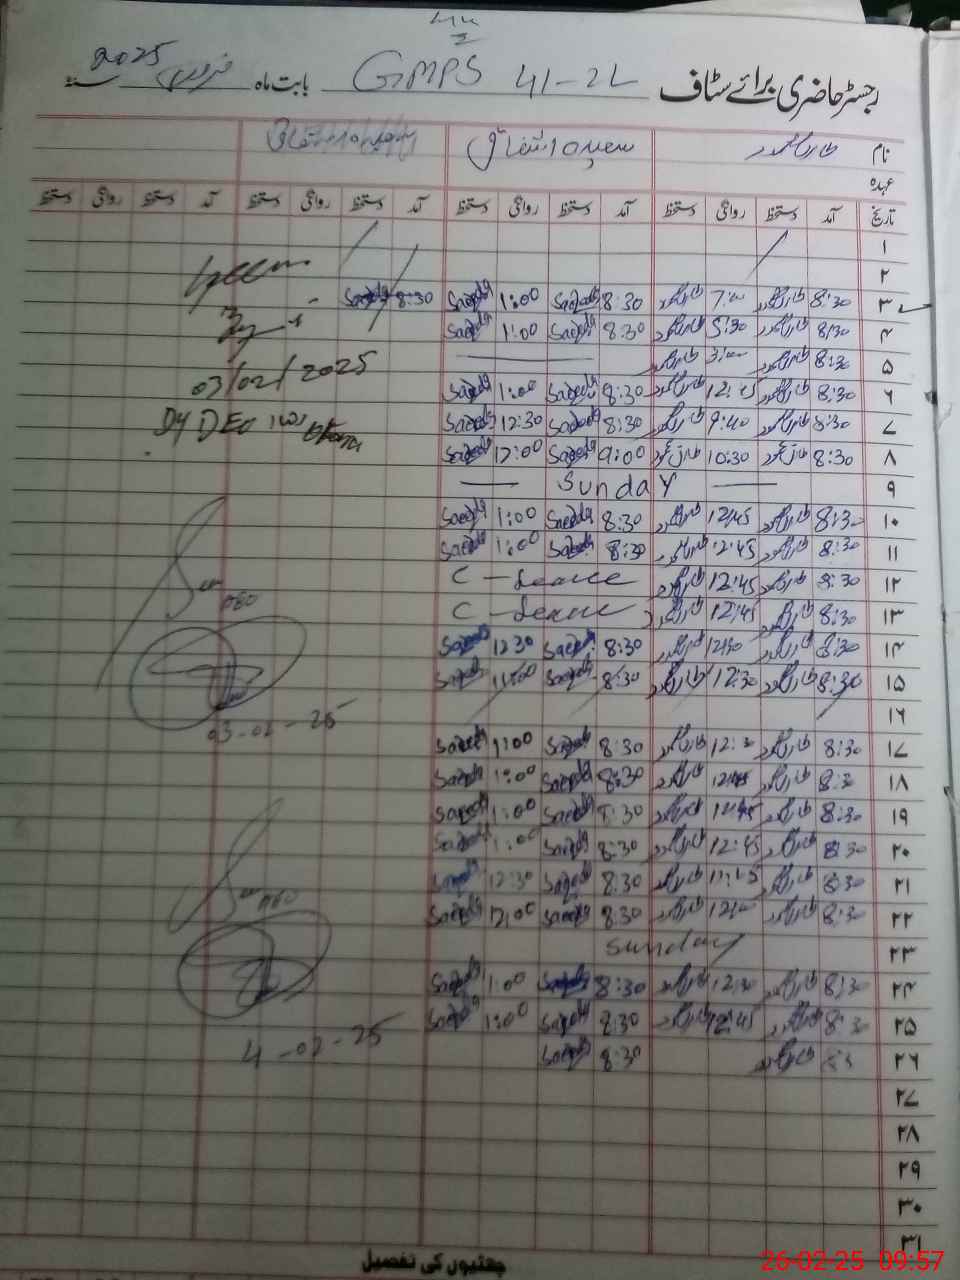 رجسٹر حاضری برائے سٹاف GMPS 41-2L بابت ماہ فروری 2025
نام طارق محمود سعیدہ اشفاق
عہدہ
تاریخ آمد دستخط روانگی دستخط آمد دستخط روانگی دستخط آمد دستخط روانگی دستخط آمد دستخط روانگی دستخط
۱
۲
۳ 8:30 طارق محمود 7:00 طارق محمود 8:30 Saeeda 1:00 Saeeda 8:30 Saeeda
۴ 8:30 طارق محمود 5:30 طارق محمود 8:30 Saeeda 1:00 Saeeda
۵ 8:30 طارق محمود 3:00 طارق محمود
03/02/2025
۶ 8:30 طارق محمود 12:45 طارق محمود 8:30 Saeeda 1:00 Saeeda
۷ 8:30 طارق محمود 9:40 طارق محمود 8:30 Saeeda 12:30 Saeeda
DY DEO
۸ 8:30 طارق محمود 10:30 طارق محمود 9:00 Saeeda 12:00 Saeeda
۹ Sunday
۱۰ 8:30 طارق محمود 12:45 طارق محمود 8:30 Saeeda 1:00 Saeeda
۱۱ 8:30 طارق محمود 12:45 طارق محمود 8:30 Saeeda 1:00 Saeeda
۱۲ 8:30 طارق محمود 12:45 طارق محمود C-Leave
۱۳ 8:30 طارق محمود 12:45 طارق محمود C-Leave
۱۴ 8:30 طارق محمود 12:30 طارق محمود 8:30 Saeeda 12:30 Saeeda
۱۵ 8:30 طارق محمود 12:30 طارق محمود 8:30 Saeeda Saeeda
۱۶
03-02-25
۱۷ 8:30 طارق محمود 12:30 طارق محمود 8:30 Saeeda 1:00 Saeeda
۱۸ 8:30 طارق محمود 12:45 طارق محمود 8:30 Saeeda 1:00 Saeeda
۱۹ 8:30 طارق محمود 12:45 طارق محمود 8:30 Saeeda 1:00 Saeeda
۲۰ 8:30 طارق محمود 12:45 طارق محمود 8:30 Saeeda 1:00 Saeeda
۲۱ 8:30 طارق محمود طارق محمود 8:30 Saeeda 12:30 Saeeda
۲۲ 8:30 طارق محمود 12:00 طارق محمود 8:30 Saeeda 12:00 Saeeda
۲۳ Sunday
۲۴ 8:30 طارق محمود 12:30 طارق محمود 8:30 Saeeda 1:00 Saeeda
۲۵ 8:30 طارق محمود 12:45 طارق محمود 8:30 Saeeda 1:00 Saeeda
4-02-25
۲۶ طارق محمود 8:30 Saeeda
۲۷
۲۸
۲۹
۳۰
۳۱
چھٹیوں کی تفصیل
26-02-25 09:57